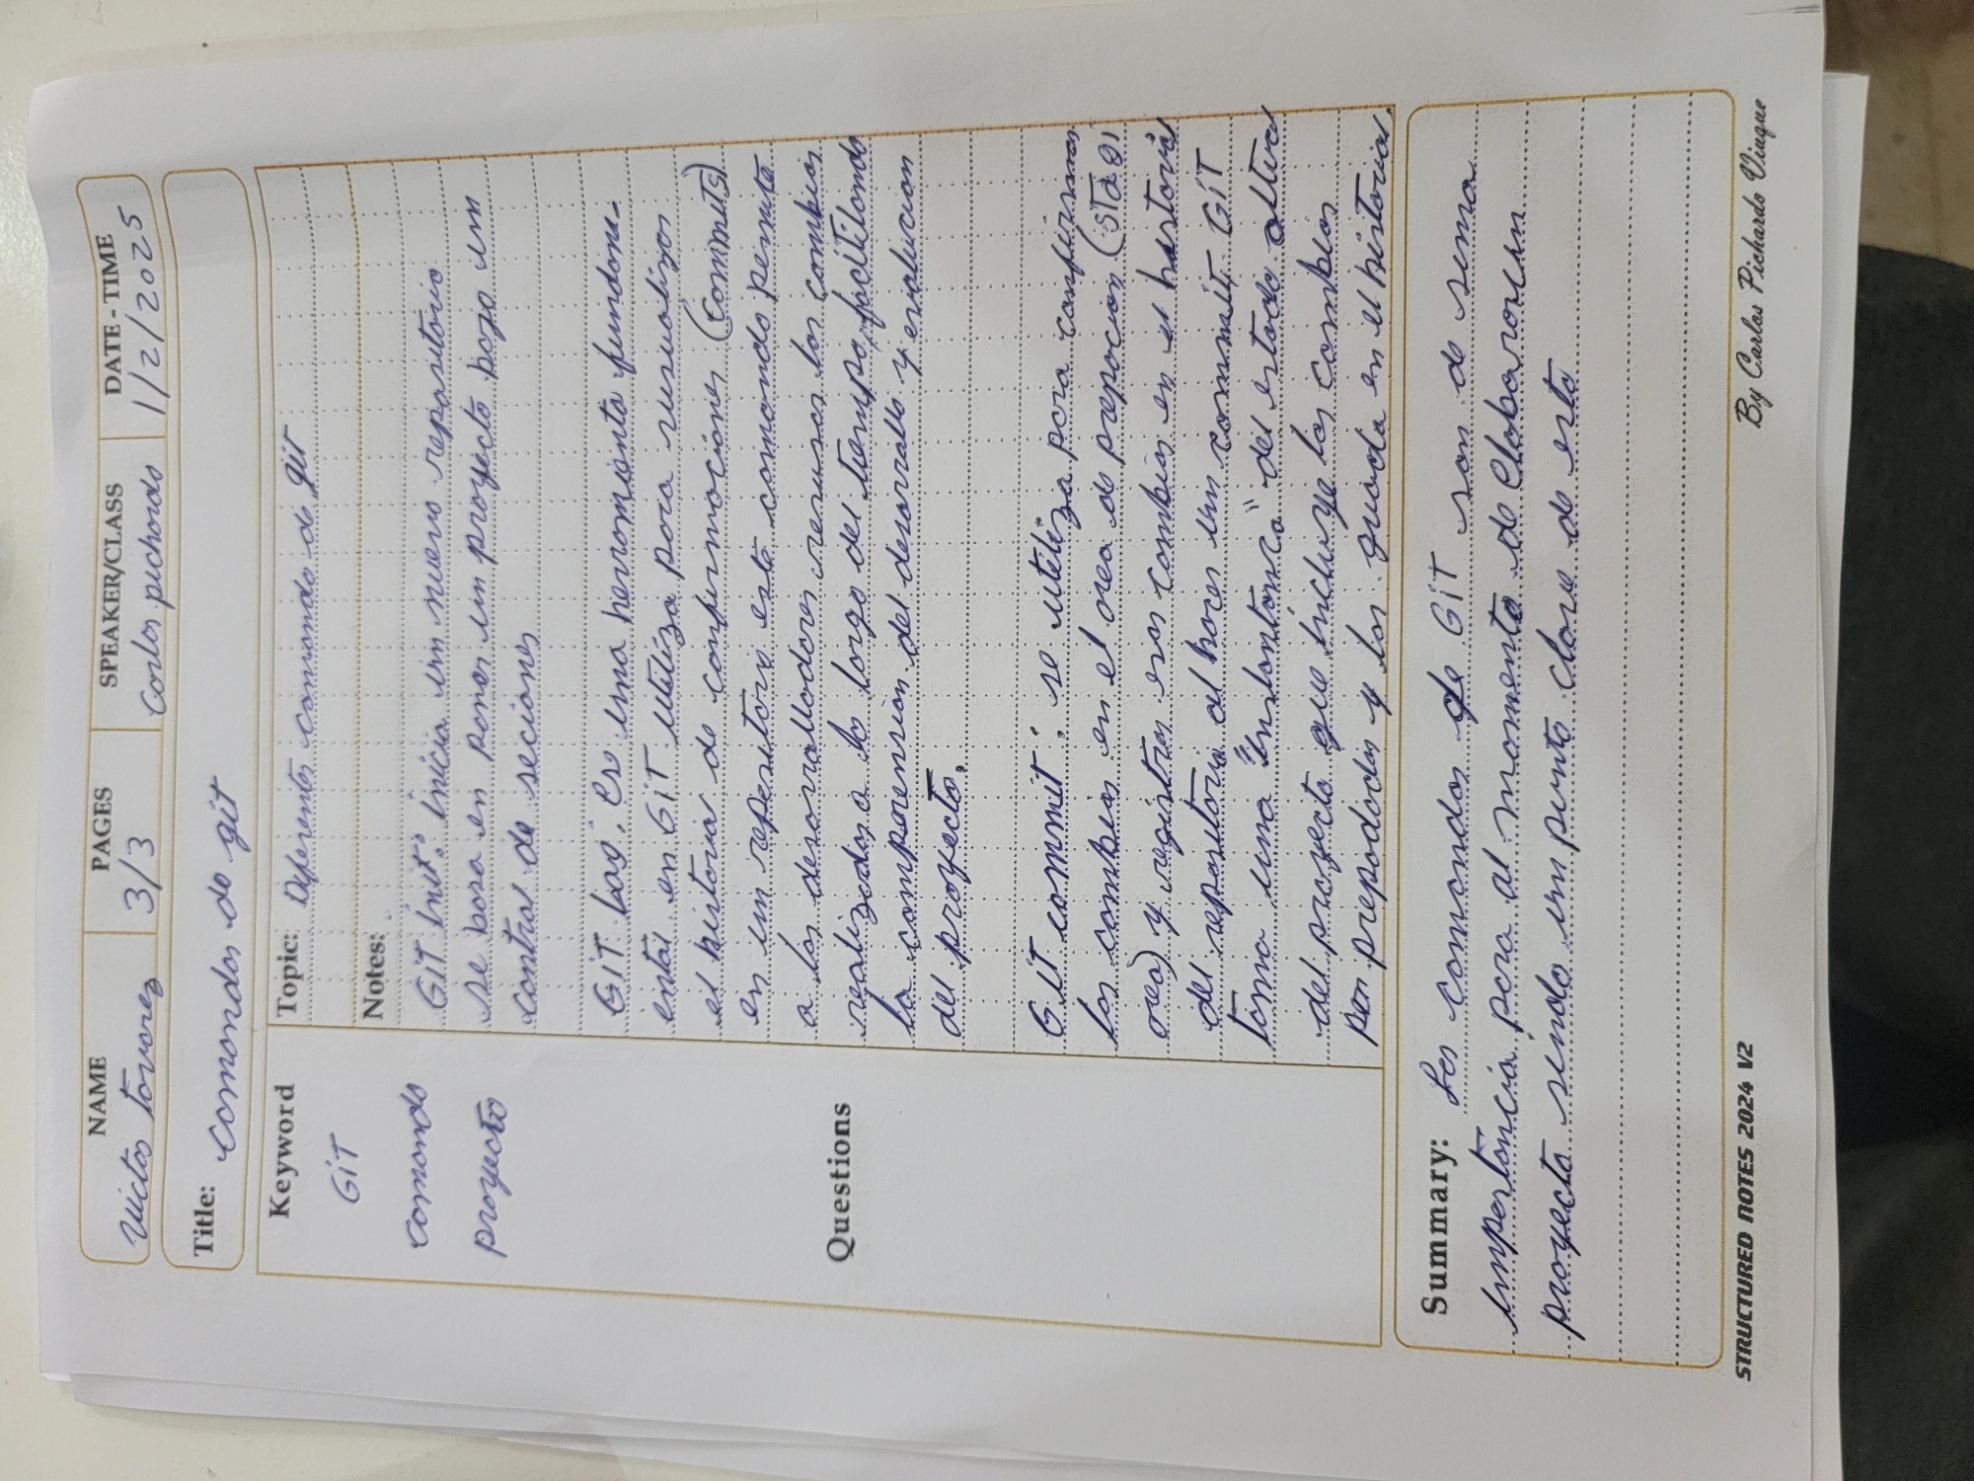 NAME PAGES SPEAKER/CLASS DATE - TIME
Victor Tavarez 3/3 Carlos pichardo 1/2/2025
Title: comandos de git
Keyword
GiT
comando
proyecto
Questions
Topic: Diferentes comando de git
Notes:
GiT init: inicia un nuevo repositorio
se basa en poner un proyecto bajo un
control de seciones
GiT Log: Es una herramienta fundam-
ental en GiT utiliza para visualizar
el historial de confirmaciones (commits)
en un repositorio este comando permite
a los desarrolladores revisar los cambios
realizados a lo largo del tiempo, facitilando
la comprension del desarrollo y evolucion
del proyecto.
Git commit: se utiliza para confirmar
los cambios en el area de prepacion
area) y registrar esos cambios en el historial
del repositorio al hacer un commit, GiT
toma una del estado
del proyecto que incluye los cambios
y los guada en el historial.
Summary: Los comandos de GiT son de suma
importancia para al momento de
proyecto siendo un punto clave de esto
STRUCTURED NOTES 2024 V2 By Carlos Pichardo Viuque